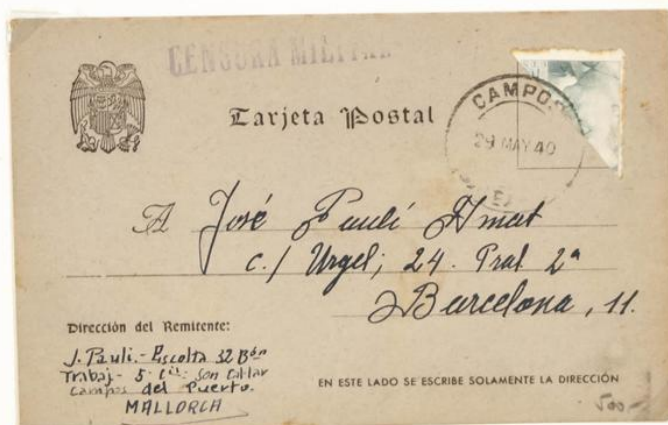 CENSURA MILITAR
Tarjeta Postal
CAMPOS
29 MAY 40
A José Paulí Amat
c./ Urgel, 24. Pral 2ª
Barcelona, 11.
Dirección del Remitente:
J. Pauli.- Escolta 32 Bón
Trabaj- 5ª Cía: Son Catlar
Campos del Puerto.
MALLORCA
EN ESTE LADO SE ESCRIBE SOLAMENTE LA DIRECCIÓN
500-